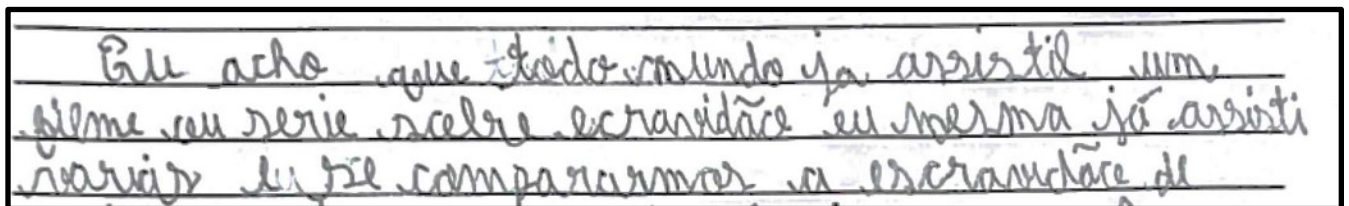 Eu acho que todo mundo ja assistil um
filme ou serie sobre ecravidão eu mesma já assisti
varias eu se compararmos a escravidão de